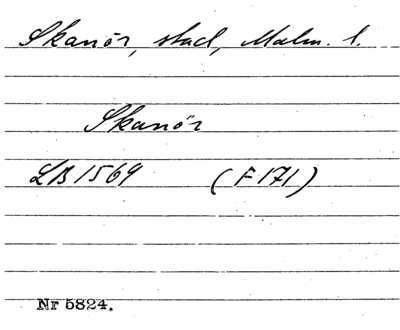 Skanör, stad, Malm. l.
Skanör
LB 1569 (F171)
Nr 5824.